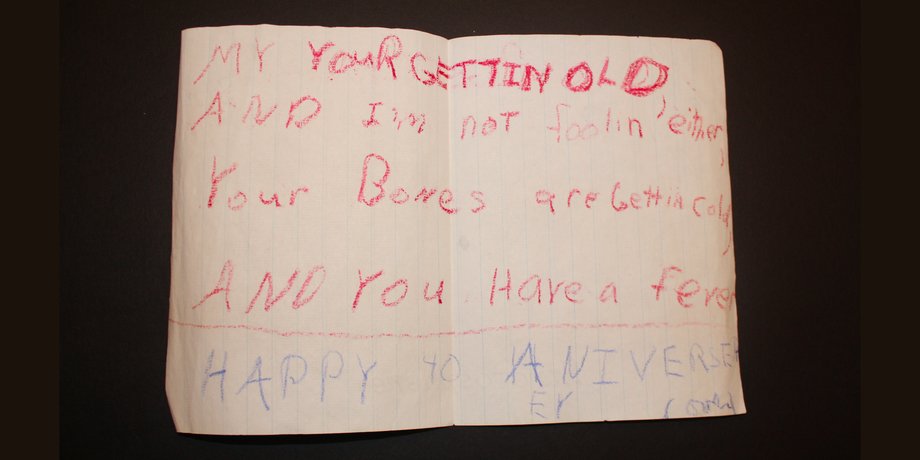 MY YOUR GETTIN OLD,
AND I'm not foolin either,
Your Bones are Gettin cold,
AND You Have a fever
HAPPY 40 ANIVERSE
EY